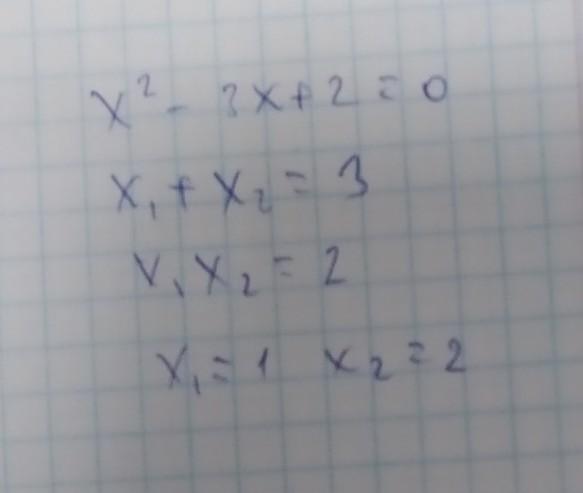 x² - 3x + 2 = 0
x₁ + x₂ = 3
x₁ x₂ = 2
x₁ = 1 x₂ = 2